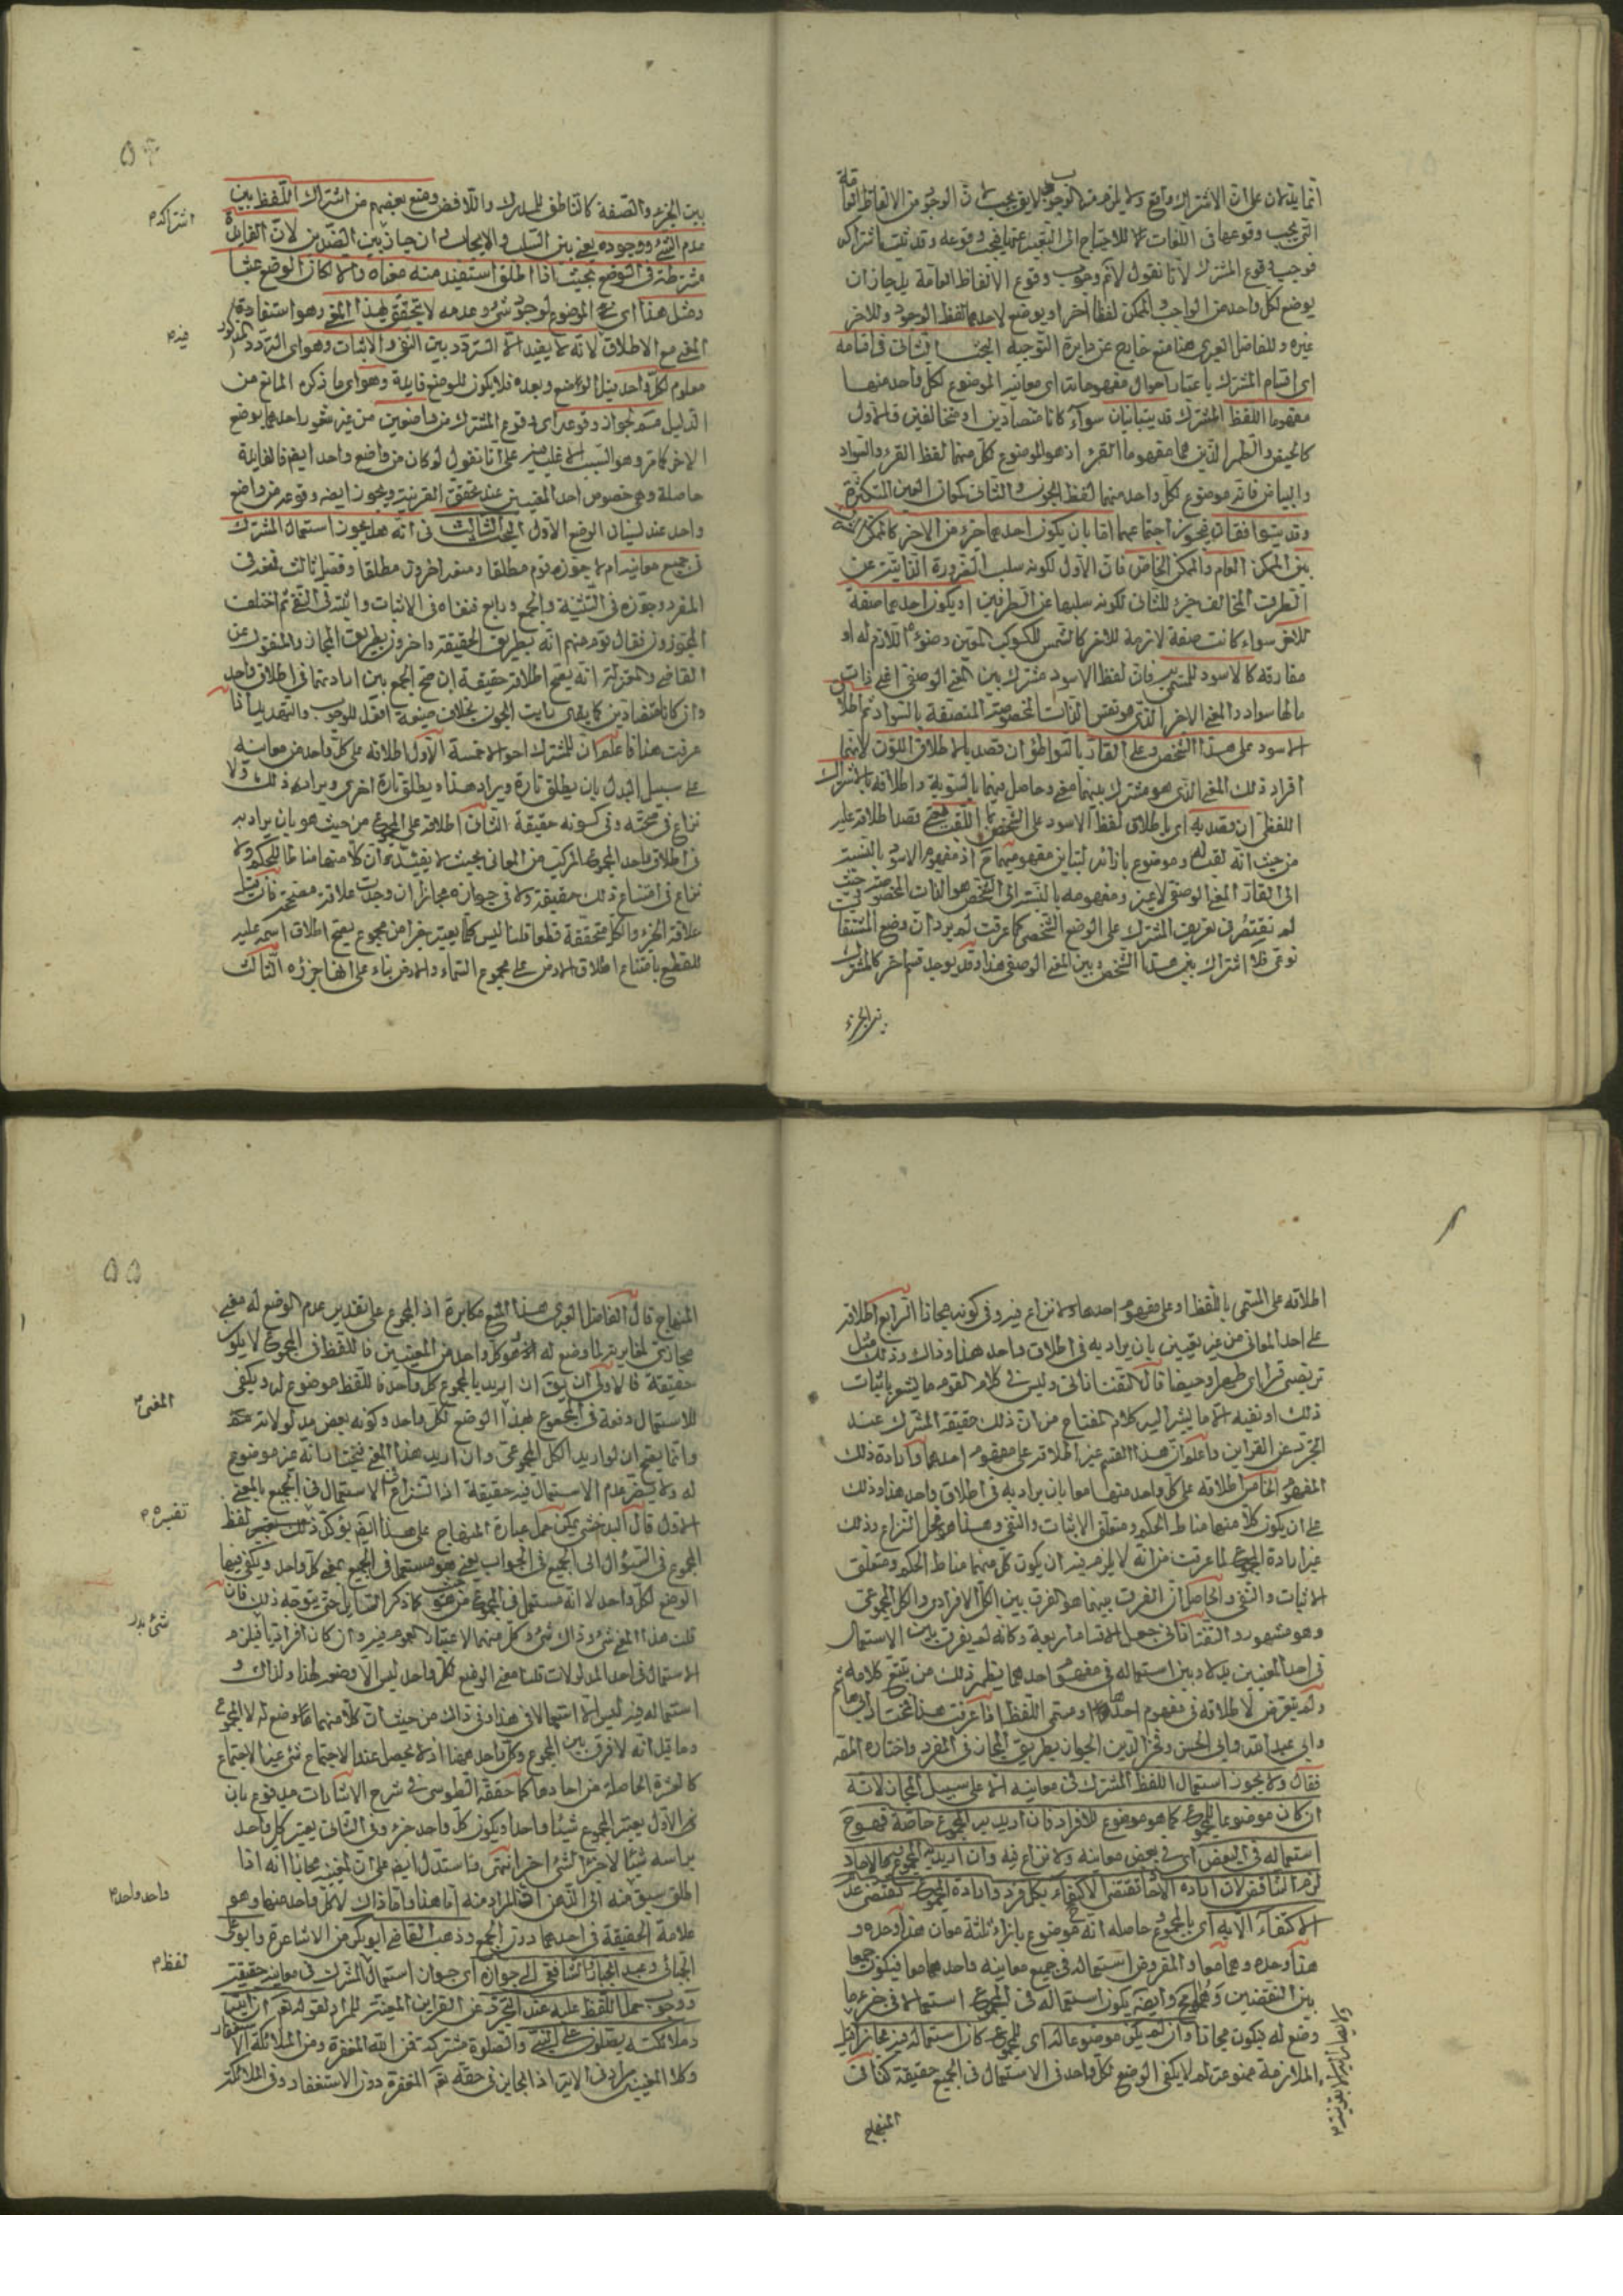 انما يدلان على ان الاشتراك واقع ولا يلزم منه الوجوب لا يق يجب لان الوجود من الالفاظ العامة
التى يجب وقوعها فى اللغات للاحتياج الى التعبير عنها فيجب وقوعه وقد ثبت اشتراكه
فوجب وقوع المشترك لانا نقول لا نم وجوب وقوع الالفاظ العامة بل جاز ان
يوضع لكل واحد من الواجب والممكن لفظا اخر او يوضع لاحدهما لفظ الوجود وللاخر
غيره وللفاضل العبرى هنا منع خارج عن دايرة التوجيه البحث الثانى فى اقسامه
اى اقسام المشترك باعتبار احوال مفهوماته اى معانيه الموضوع لكل واحد منها
مفهوما اللفظ المشترك قد يتباينان سواء كانا متضادين او متخالفين فالاول
كالحيض والطهر الذين هما مفهوما القرء اذ هو الموضوع لكل منهما لفظ القرء والسواد
والبياض فانه موضوع لكل واحد منهما لفظ الجون والثانى كمعانى العين المتكثرة
وقد يتوافقان فيجوز اجتماعهما اما بان يكون احدهما جزء من الاخر كالممكن
بين الممكن العام والممكن الخاص فان الاول لكونه سلب الضرورة الذاتية عن
الطرف المخالف جزء للثانى لكونه سلبها عن الطرفين او يكون احدهما صفة
للاخر سواء كانت صفة لازمة للاخر كالشمس للكوكب المعين وضوئه اللازم له او
مفارقة كالاسود للمسمى به فان لفظ الاسود مشترك بين المعنى الوصفى اعنى ذات
مالها سواد والمعنى الاخر الذى هو نفس الذات المخصوصة المتصفة بالسواد ثم اطلاق
الاسود على هذا الشخص وعلى القار بالتواطؤ ان قصد بالاطلاق اللون لانهما
افراد ذلك المعنى الذى هو مشترك بينهما معنى وحاصل فيهما بالسوية واطلاقه بالاشتراك
اللفظى ان قصد به اى باطلاق لفظ الاسود على الشخص اللقب يعنى قصد اطلاقه عليه
من حيث انه لقب له وموضوع بازائه لتباين مفهوميهما ح اذ مفهوم الاسود بالنسبة
الى القار المعنى الوصفى لا غير ومفهومه بالنسبة الى الشخص هو الذات المخصوصة حيث
لم نقتصر فى تعريف المشترك على الوضع الشخصى كما عرفت لم يرد ان وضع المشتقات
نوعى فلا اشتراك بين هذا الشخص وبين المعنى الوصفى هذا وقد يوجد قسم اخر كالمشترك
بين الجزء
بين الجزء والصفة كالناطق للمدرك واللافظ ومنع بعضهم من اشتراك اللفظ بين
عدم الشئ ووجوده يعنى بين السلب والايجاب ان جاز بين الضدين لان الفايدة
مشترطة فى الوضع بحيث اذا اطلق استفيد منه معناه والا لكان الوضع عبثا
ومثل هذا اى الموضوع لوجود شئ وعدمه لا يتحقق لهذا المعنى وهو استفادة
المعنى مع الاطلاق لانه لا يفيد الا التردد بين النفى والاثبات وهو اى التردد المذكور
معلوم لكل واحد قبل الوضع وبعده فلا يكون للوضع فايدة وهو اى ما ذكره المانع من
الدليل مم لجواز وقوعه اى وقوع المشترك من واضعين من غير شعور احدهما بوضع
الاخر كما مر وهو السبب الاغلب على انا نقول لو كان من واضع واحد ايضا فالفايدة
حاصلة وهى خصوص احد المعنيين عند تحقق القرينة ويجوز ايضا وقوعه من واضع
واحد عند نسيان الوضع الاول البحث الثالث فى انه هل يجوز استعمال المشترك
فى جميع معانيه ام لا جوزه قوم مطلقا ومنعه اخرون مطلقا وفصل ثالث فمنعه فى
المفرد وجوزه فى التثنية والجمع ورابع فنفاه فى الاثبات واثبته فى النفى ثم اختلف
المجوزون فقال قوم منهم انه بطريق الحقيقة واخرون بطريق المجاز والمنقول عن
القاضى والمعتزلة انه يصح اطلاقه حقيقة ان صح الجمع بين ارادتهما فى اطلاق واحد
وان كانا متضادين كما يقال رايت الجون بخلاف صيغة افعل للوجوب والتهديد اذا
عرفت هذا فاعلم ان للمشترك احوالا خمسة الاول اطلاقه على كل واحد من معانيه
على سبيل البدل بان يطلق تارة ويراد هذا ويطلق تارة اخرى ويراد ذلك ولا
نزاع فى صحته وفى كونه حقيقة الثانى اطلاقه على المجموع من حيث هو بان يراد به
فى اطلاق واحد المجموع المركب من المعانى بحيث لا يفيد ان كلا منهما مناط للحكم ولا
نزاع فى امتناع ذلك حقيقة ولا فى جوازه مجازا ان وجدت علاقة مصححة فان قيل
علاقة الجزء والكل متحققة قطعا قلنا ليس كلما يعتبر جزءا من مجموع يصح اطلاق اسمه عليه
للقطع بامتناع اطلاق الارض على مجموع السماء والارض بناء على انها جزؤه الثالث
اشتراكه م
فيه م
٥٤
اطلاقه على المسمى باللفظ او على مفهوم احدها ولا نزاع فيه وفى كونه مجازا الرابع اطلاقه
على احد المعانى من غير تعيين بان يراد به فى اطلاق واحد هذا او ذاك وذلك مثل
تربصى قرءا اى طهرا او حيضا قال التفتازانى وليس فى كلام القوم ما يشعر باثبات
ذلك او نفيه الا ما يشير اليه كلام المفتاح من ان ذلك حقيقة المشترك عند
التجرد عن القراين واعلم ان هذا القسم غير اطلاقه على مفهوم احدهما وارادة ذلك
المفهوم الخامس اطلاقه على كل واحد منهما معا بان يراد به فى اطلاق واحد هذا وذلك
على ان يكون كلا منهما مناط الحكم ومتعلق الاثبات والنفى وهذا هو محل النزاع وذلك
غير ارادة المجموع لما عرفت من انه لا يلزم فيه ان يكون كل منهما مناط الحكم ومتعلق
الاثبات والنفى والحاصل ان الفرق بينهما هو الفرق بين الكل الافرادى والكل المجموعى
وهو مشهور والتفتازانى جعل الاقسام اربعة وكانه لم يفرق بين الاستعمال
فى احد المعنيين بدلا وبين استعماله فى مفهوم احدهما يظهر ذلك من تتبع كلامه
ولم يتعرض لاطلاقه فى مفهوم احدهما ومسمى اللفظ اذا عرفت هذا
وابى عبد الله وابى الحسن وفخر الدين الجواز بطريق المجاز فى المفرد واختاره المص
فقال ولا يجوز استعمال اللفظ المشترك فى معانيه الا على سبيل المجاز لانه
ان كان موضوعا للمجموع كما هو موضوع للافراد فان اريد به المجموع خاصة فهو ح
استعماله فى البعض اى فى بعض معانيه ولا نزاع فيه وان اريد به المجموع مع الافراد
لزم التناقض لان ارادة الاحاد تقتضى الاكتفاء بكل فرد وارادة المجموع تقتضى عدم
الاكتفاء الا به اى بالمجموع حاصله انه موضوع بازاء ثلثة معان هذا وحده و
هذا وحده وهما معا والمفروض استعماله فى جميع معانيه واحدهما معا فيكون جمعا
بين النقيضين وايضا يكون استعماله فى المجموع استعمالا فى جزء ما
وضع له فيكون مجازا وان لم يكن موضوعا له اى للمجموع كان استعماله فيه مجازا قيل
الملازمة ممنوعة لم لا يكفى الوضع لكل واحد فى الاستعمال فى الجميع حقيقة كذا فى
المنهاج
المنهاج قال الفاضل العبرى هذا المنع مكابرة اذ المجموع على تقدير عدم الوضع له معنى
مجازى لمغايرته لما وضع له اذ هو كل واحد من المعنيين فاللفظ فى المجموع لا يكون
حقيقة فالاولى ان يق ان اريد بالمجموع كل واحد فاللفظ موضوع له ويكفى
للاستعمال دفعة فى المجموع لهذا الوضع لكل واحد وكونه بعض مدلولاته
وانما يصح ان لو اريد الكل المجموعى وان اريد هذا المعنى فيختار انه غير موضوع
له ولا يضر عدم الاستعمال فيه حقيقة اذ النزاع فى الاستعمال فى الجميع بالمعنى
الاول قال البدخشى يمكن حمل عبارة المنهاج على هذا اليؤكد ذلك لفظ
المجموع فى السؤال الى الجميع فى الجواب يعنى هو مستعمل فى الجميع بمعنى كل واحد ويكفى فيها
الوضع لكل واحد لا انه مستعمل فى المجموع كما ذكر القايل حتى يتوجه ذلك فان
قلت هذا المعنى شئ وذاك شئ
الاستعمال فى احد المدلولات قلنا معنى الوضع لكل واحد ليس الا وضعه لهذا ولذاك و
استعماله فيه ليس الا استعمالا فى هذا وفى ذاك من حيث ان كلا منهما ما وضع له لا المجموع
وما قيل انه لا فرق بين المجموع وكل واحد معا اذ لا يحصل عند الاجتماع شئ غير الاجتماع
كالعشرة الحاصلة من احادها كما حققه الطوسى فى شرح الاشارات مدفوع بان
فى الاول يعتبر المجموع شيئا واحدا ويكون كل واحد جزءه وفى الثانى يعتبر كل واحد
براسه شيئا لا جزءا لشئ اخر انتهى واستدل ايضا على ان مجازا انه اذا
اطلق سبق منه الى الذهن ان المراد منه اما هذا واما ذاك لا كل واحد منهما وهو
علامة الحقيقة فى احدهما دون الجمع وذهب القاضى ابو بكر من الاشاعرة وابو على
الجبائى وعبد الجبار والشافعى الى جوازه اى جواز استعمال المشترك فى معانيه حقيقة
ووجوب حمل اللفظ عليه عند التجرد عن القراين المعينة للمراد لقوله تعالى ان الله
وملائكته يصلون على النبى والصلوة مشتركة فمن الله المغفرة ومن الملائكة الاستغفار
وكلا المعنيين مراد فى الاية اذ الجايز فى حقه تعالى المغفرة دون الاستغفار وفى الملائكة
المعنى م
تفسيره م
واحد واحد م
لفظ م
٥٥